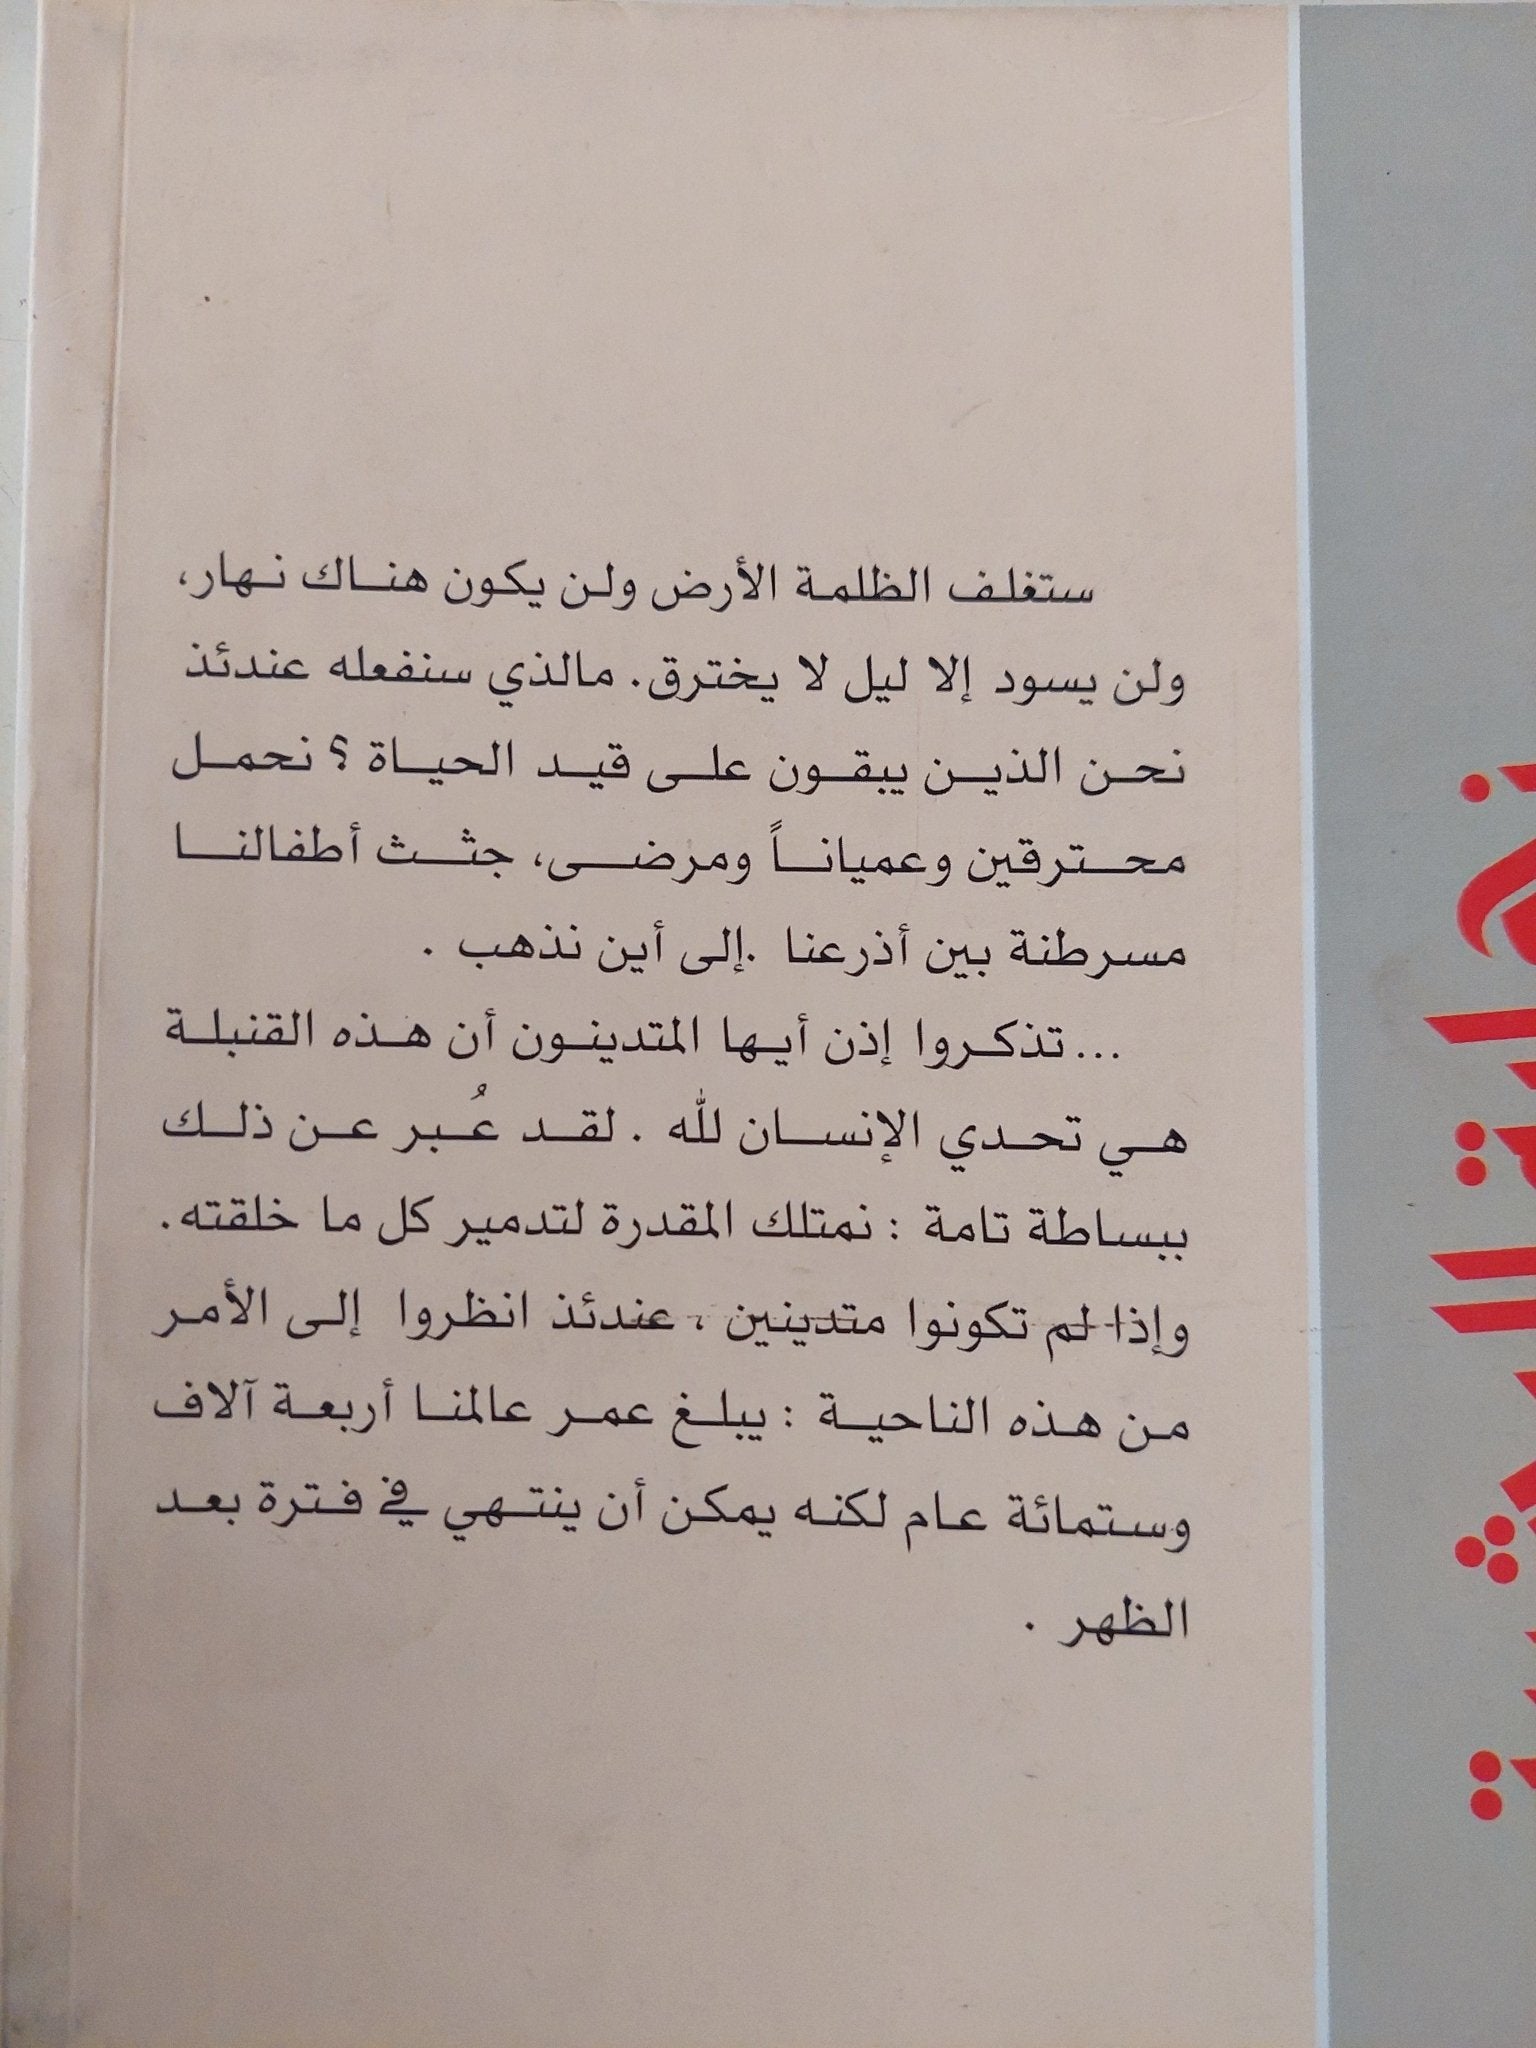 ستغلف الظلمة الأرض ولن يكون هناك نهار،
ولن يسود إلا ليل لا يخترق. مالذي سنفعله عندئذ
نحن الذين يبقون على قيد الحياة ؟ نحمل
محترقين وعمياناً ومرضى، جثث أطفالنا
مسرطنة بين أذرعنا .إلى أين نذهب .
...تذكروا إذن أيها المتدينون أن هذه القنبلة
هي تحدي الإنسان لله . لقد عُبر عن ذلك
ببساطة تامة : نمتلك المقدرة لتدمير كل ما خلقته.
وإذا لم تكونوا متدينين ، عندئذ انظروا إلى الأمر
من هذه الناحية : يبلغ عمر عالمنا أربعة آلاف
وستمائة عام لكنه يمكن أن ينتهي في فترة بعد
الظهر .